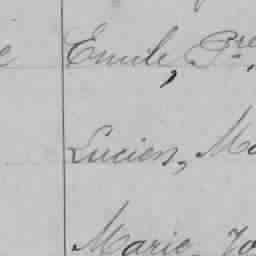 e Emile, Pre
Lucien, Ma
Marie Jo